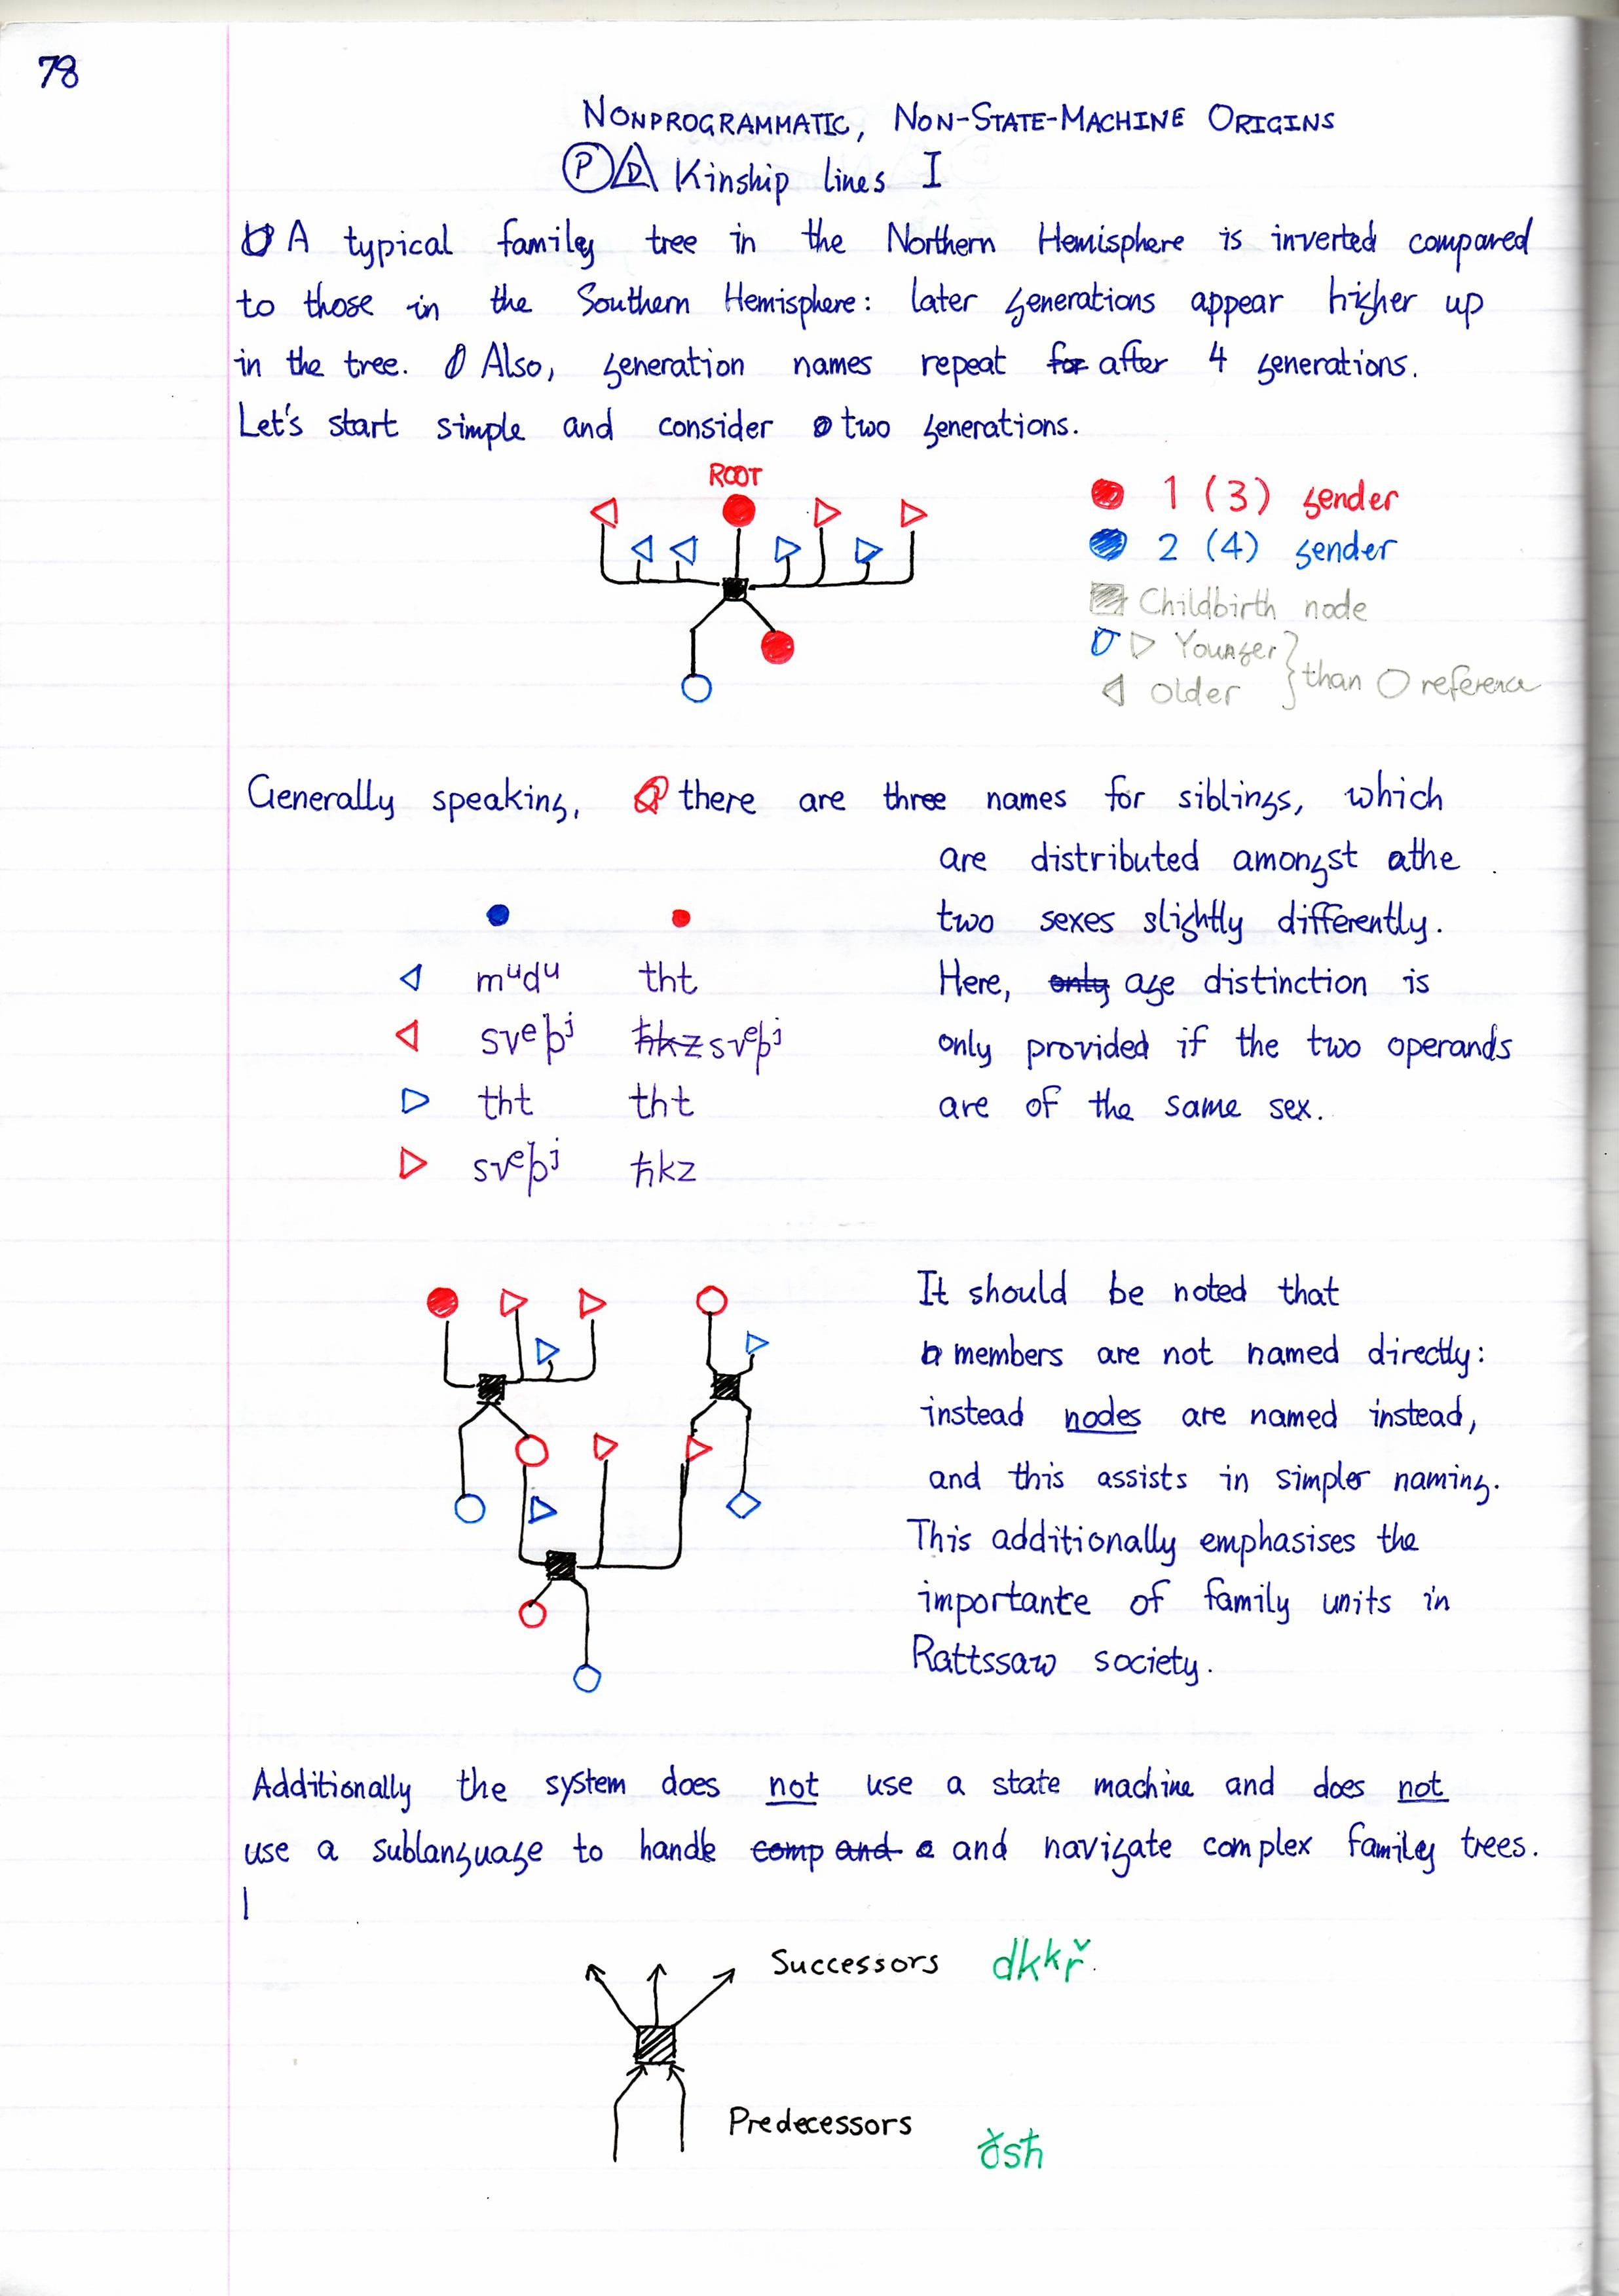 78
NONPROGRAMMATIC, NON-STATE-MACHINE ORIGINS
P D Kinship lines I
A typical family tree in the Northern Hemisphere is inverted compared
to those in the Southern Hemisphere: later generations appear higher up
in the tree. Also, generation names repeat for after 4 generations.
Let's start simple and consider two generations.
ROOT
1 (3) gender
2 (4) gender
Childbirth node
Younger
Older
than ○ reference
Generally speaking, there are three names for siblings, which
are distributed amongst athe
two sexes slightly differently.
Here, only age distinction is
only provided if the two operands
are of the same sex.
◁ mᵘdᵘ tht
◁ svᵉþʲ ħkz svᵉþʲ
▷ tht tht
▷ svᵉþʲ ħkz
It should be noted that
members are not named directly:
instead nodes are named instead,
and this assists in simpler naming.
This additionally emphasises the
importante of family units in
Rattssaw society.
Additionally the system does not use a state machine and does not
use a sublanguage to handle comp and a and navigate complex family trees.
Successors dkᵏř.
Predecessors